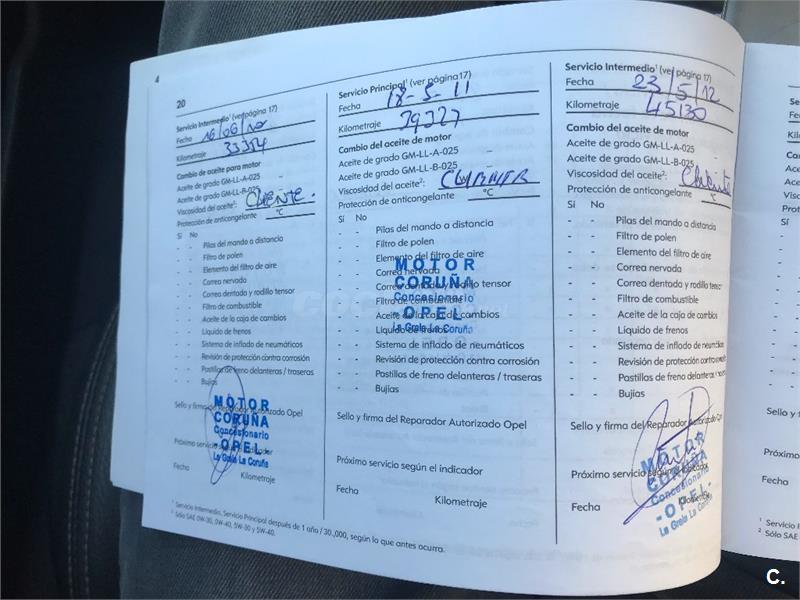 4
20
Servicio Intermedio¹ (ver página 17)
Fecha 16/06/10
Kilometraje 33354
Cambio de aceite para motor
Aceite de grado GM-LL-A-025 –
Aceite de grado GM-LL-B-025 –
Viscosidad del aceite²: CLIENTE.
Protección de anticongelante °C
Sí No
- - Pilas del mando a distancia
- - Filtro de polen
- - Elemento del filtro de aire
- - Correa nervada
- - Correa dentada y rodillo tensor
- - Filtro de combustible
- - Aceite de la caja de cambios
- - Líquido de frenos
- - Sistema de inflado de neumáticos
- - Revisión de protección contra corrosión
- - Pastillas de freno delanteras / traseras
- - Bujías
Sello y firma del Reparador Autorizado Opel
MOTOR
CORUÑA
Concesionario
- OPEL -
La Grela La Coruña
Próximo servicio según el indicador
Fecha
Kilometraje
¹ Servicio Intermedio, Servicio Principal después de 1 año / 30.,000, según lo que antes ocurra.
² Sólo SAE 0W-30, 0W-40, 5W-30 y 5W-40.
Servicio Principal¹ (ver página 17)
Fecha 18-5-11
Kilometraje 39327
Cambio del aceite de motor
Aceite de grado GM-LL-A-025 –
Aceite de grado GM-LL-B-025 –
Viscosidad del aceite²:
Protección de anticongelante °C
Sí No
- - Pilas del mando a distancia
- - Filtro de polen
- - Elemento del filtro de aire
- - Correa nervada
- - Correa dentada y rodillo tensor
- - Filtro de combustible
- - Aceite de la caja de cambios
- - Líquido de frenos
- - Sistema de inflado de neumáticos
- - Revisión de protección contra corrosión
- - Pastillas de freno delanteras / traseras
- - Bujías
MOTOR
CORUÑA
Concesionario
- OPEL -
La Grela La Coruña
Sello y firma del Reparador Autorizado Opel
Próximo servicio según el indicador
Fecha
Kilometraje
Servicio Intermedio¹ (ver página 17)
Fecha 23/5/12
Kilometraje 45130
Cambio del aceite de motor
Aceite de grado GM-LL-A-025 –
Aceite de grado GM-LL-B-025
Viscosidad del aceite²: Cliente
Protección de anticongelante °C
Sí No
- - Pilas del mando a distancia
- - Filtro de polen
- - Elemento del filtro de aire
- - Correa nervada
- - Correa dentada y rodillo tensor
- - Filtro de combustible
- - Aceite de la caja de cambios
- - Líquido de frenos
- - Sistema de inflado de neumáticos
- - Revisión de protección contra corrosión
- - Pastillas de freno delanteras / traseras
- - Bujías
Sello y firma del Reparador Autorizado Opel
MOTOR
CORUÑA
Concesionario
- OPEL -
La Grela La Coruña
Próximo servicio según el indicador
Fecha
Kilometraje
Aceite
Aceite
Sí
Fecha
¹ Servicio
² Sólo SAE
C.